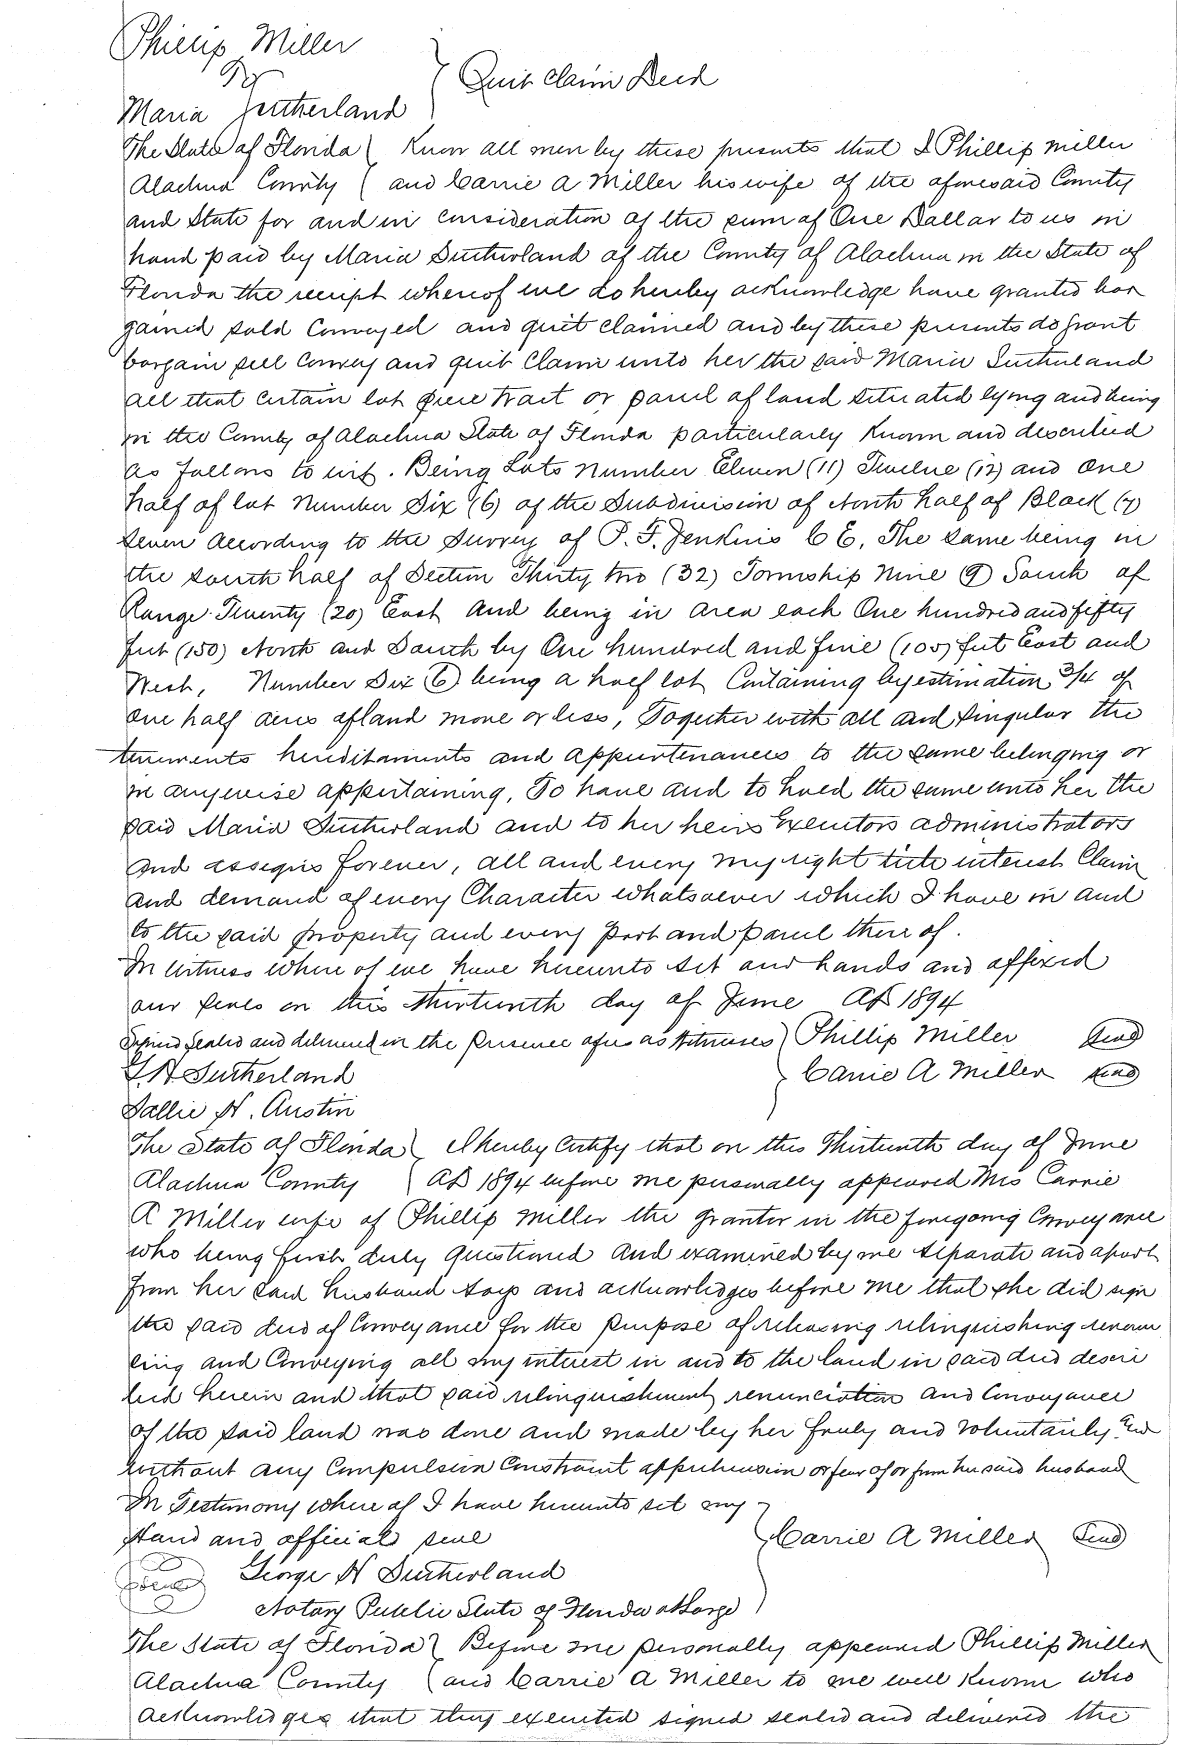 Phillip Miller
To } Quit Claim Deed
Maria Sutherland
The State of Florida ( Know all men by these presents that I Phillip Miller
Alachua County ( and Carrie A Miller his wife of the aforesaid County
and State for and in consideration of the sum of One Dollar to us in
hand paid by Maria Sutherland of the County of Alachua in the State of
Florida the receipt whereof we do hereby acknowledge have granted bar
gained sold Conveyed and quit claimed and by these presents do grant
bargain sell Convey and quit Claim unto her the said Maria Sutherland
all that certain lot piece tract or parcel of land situated lying and being
in the County of Alachua State of Florida particularly Known and described
as follows to wit. Being Lots Number Eleven (11) Twelve (12) and One
half of lot Number Six (6) of the Subdivision of North half of Block (7)
Seven According to the Survey of P. F. Jenkins C E. The same being in
the south half of Section Thirty two (32) Township Nine (9) South of
Range Twenty (20) East and being in area each One hundred and fifty
feet (150) North and South by One hundred and five (105) feet East and
West, Number Six (6) being a half lot Containing by estimation 3/4 of
one half acres of land more or less, Together with all and singular the
tenements hereditaments and appurtenances to the same belonging or
in anywise appertaining, To have and to hold the same unto her the
said Maria Sutherland and to her heirs Executors administrators
and assigns forever, all and every my right title interest Claim
and demand of every Character whatsoever which I have in and
to the said property and every part and parcel there of.
In witness where of we have hereunto set and hands and affixed
our seals on this thirteenth day of June AD 1894
Signed Sealed and delivered in the presence of us as witnesses ) Phillip Miller Seal
G H Sutherland } Carrie A Miller Seal
Sallie N. Austin
The State of Florida ) I hereby Certify that on this Thirteenth day of June
Alachua County ( AD 1894 before me personally appeared Mrs Carrie
A Miller wife of Phillip Miller the grantor in the foregoing Conveyance
who being first duly questioned and examined by me separate and apart
from her said husband says and acknowledges before me that she did sign
the said deed of Conveyance for the purpose of releasing relinquishing renoun
cing and Conveying all my interest in and to the land in said deed descri
bed herein and that said relinquishment renunciation and Conveyance
of the said land was done and made by her freely and voluntarily and
without any Compulsion Constraint apprehension or fear of or from her said husband
In Testimony where of I have hereunto set my
Hand and official seal } Carrie A Miller Seal
George H Sutherland
Notary Public State of Florida at Large )
The State of Florida } Before me personally appeared Phillip Miller
Alachua County ( and Carrie A Miller to me well Known who
acknowledges that they executed signed sealed and delivered the